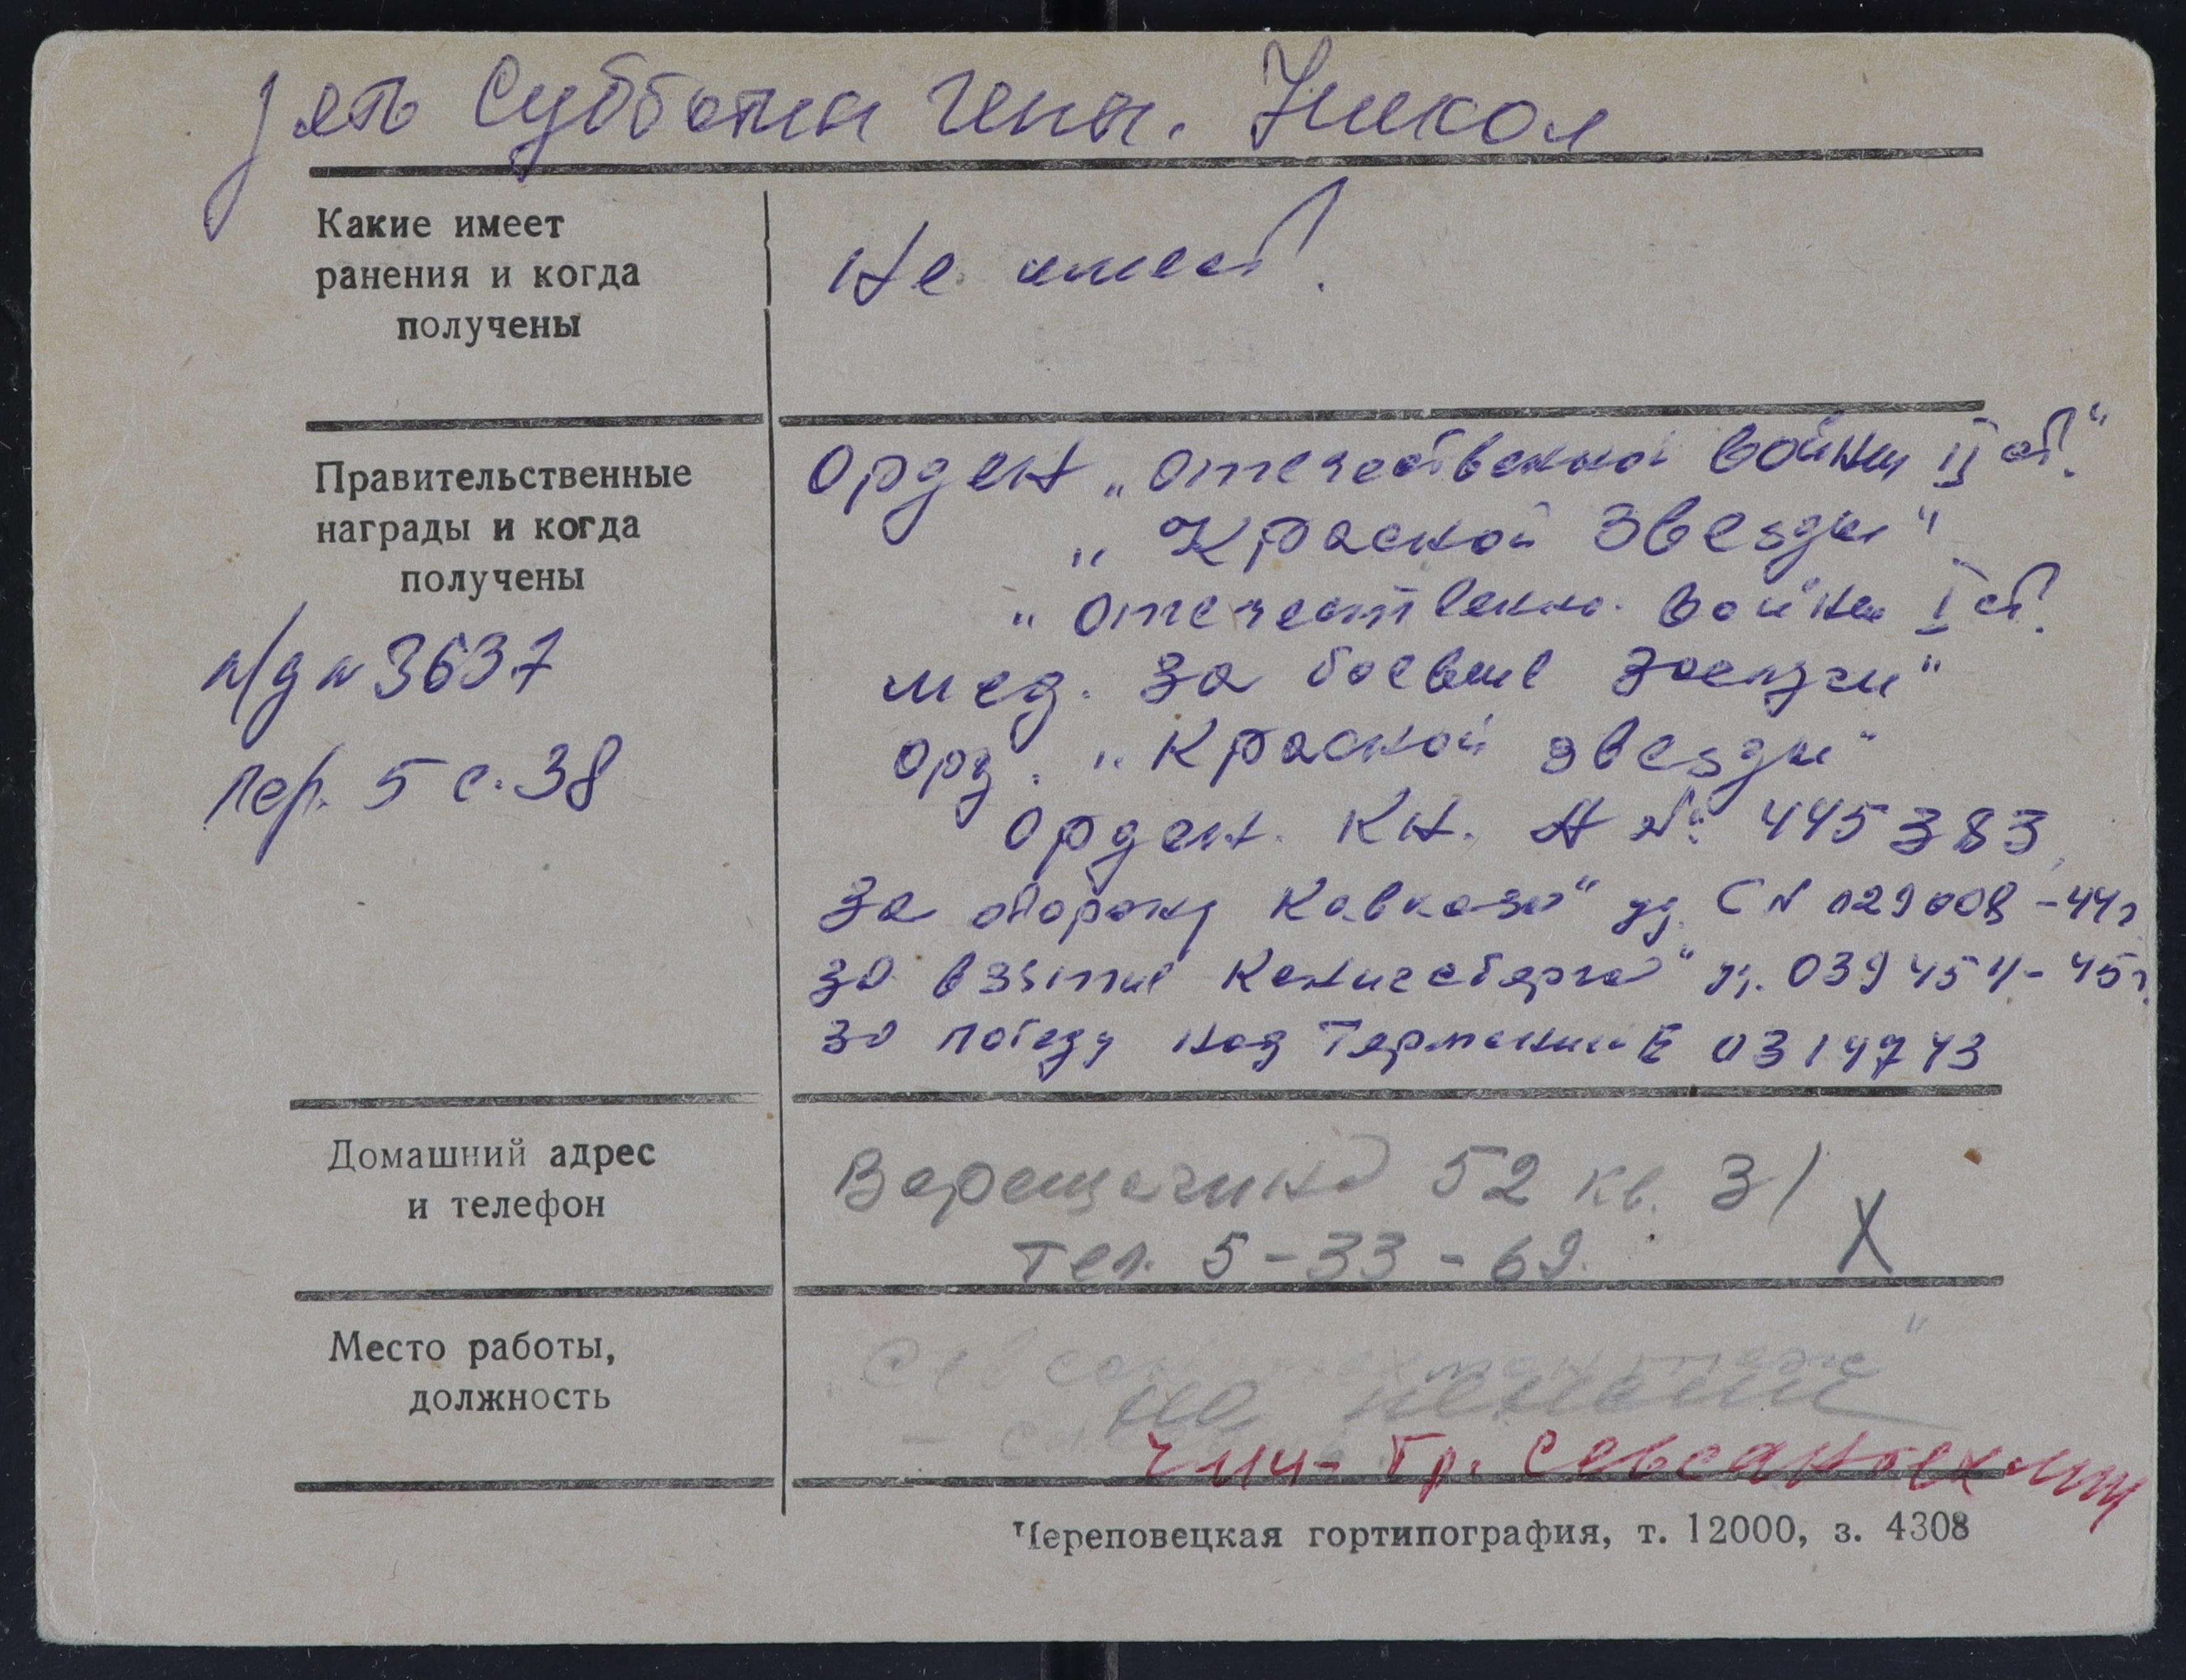 зять Субботина Генн. Никол
Какие имеет
ранения и когда
получены
Не имеет.
Правительственные
награды и когда
получены
п/д № 3637
пер. 5 с. 38
Орден „Отечественной войны II ст."
„Красной Звезды"
„Отечественной войны I ст.
мед. За боевые заслуги"
Орд. „Красной звезды"
Орден. Кн. А № 445383
За оборону Кавказа" уд. С № 029008 - 44г
За взятие Кенигсберга" уд. 039454 - 45г.
За победу над Германией Е 0319743
Домашний адрес
и телефон
Верещагина 52 кв. 31 X
тел. 5-33-69.
Место работы,
должность
на пенсии
гр. Севсантехмон
Череповецкая гортипография, т. 12000, з. 4308